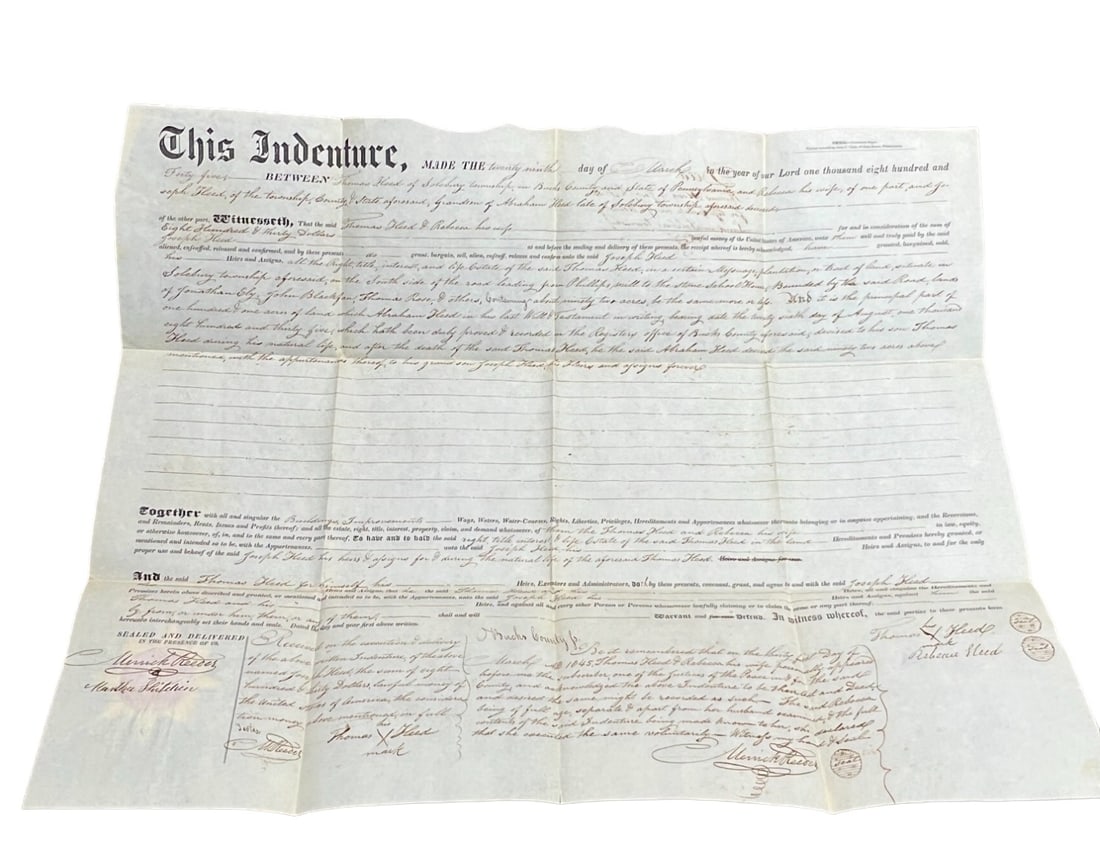 This Indenture, MADE THE twenty ninth day of March in the year of our Lord one thousand eight hundred and
Forty five BETWEEN Thomas Heed of Solebury township, in Bucks County and State of Pennsylvania, and Rebecca his wife, of one part, and Jo-
seph Heed, of the township, County & State aforesaid, Grandson of Abraham Heed late of Solebury township aforesaid deceased
of the other part, Witnesseth, That the said Thomas Heed & Rebecca his wife for and in consideration of the sum of
Eight Hundred & thirty Dollars lawful money of the United States of America, unto them well and truly paid by the said
Joseph Heed at and before the ensealing and delivery of these presents, the receipt whereof is hereby acknowledged, have granted, bargained, sold,
aliened, enfeoffed, released and confirmed, and by these presents do grant, bargain, sell, alien, enfeoff, release and confirm unto the said Joseph Heed
his Heirs and Assigns, all the Right, title, interest, and life Estate of the said Thomas Heed, in a certain Messuage, plantation, or tract of land, situate in
Solebury township aforesaid, on the South side of the road leading from Phillips' mill to the stone School House, Bounded by the said Road, lands
of Jonathan Ely, John Blackfan, Thomas Rose, & others, Containing about ninety two acres be the same more or less. And it is the principal part of
one hundred & one acres of land which Abraham Heed in his last Will & Testament in writing bearing date the twenty sixth day of August, one thousand
eight hundred and thirty five, which hath been duly proved & recorded in the Registers office of Bucks County aforesaid, devised to his son Thomas
Heed during his natural life, and after the death of the said Thomas Heed, he the said Abraham Heed devised the said ninety two acres above
mentioned, with the appurtenances thereof, to his grand son Joseph Heed, his Heirs and assigns forever
Together with all and singular the Buildings Improvements Ways, Waters, Water-Courses, Rights, Liberties, Privileges, Hereditaments and Appurtenances whatsoever thereunto belonging or in anywise appertaining, and the Reversions
and Remainders, Rents, Issues and Profits thereof; and all the estate, right, title, interest, property, claim, and demand whatsoever of them the Thomas Heed and Rebecca his wife in law, equity,
or otherwise howsoever, of, in, and to the same and every part thereof. To have and to hold the said right, title interest & life Estate of the said Thomas Heed in the land Hereditaments and Premises hereby granted, or
mentioned and intended so to be, with the Appurtenances, unto the said Joseph Heed his Heirs and Assigns, to and for the only
proper use and behoof of the said Joseph Heed his heirs & assigns for & during the natural life of the aforesaid Thomas Heed.
And the said Thomas Heed for himself his Heirs, Executors and Administrators, doth by these presents, covenant, grant, and agree to and with the said Joseph Heed
his Heirs and Assigns that he the
Premises herein above described and granted, or mentioned and intended so to be, with the Appurtenances, unto the said Joseph Heed his Heirs and Assigns, against him the said
Thomas Heed and his Heirs, and against all and every other Person or Persons whomsoever lawfully claiming or to claim the same or any part thereof,
by from or under him, them, or any of them, shall and will Warrant and Defend. In witness whereof, the said parties to these presents have
hereunto interchangeably set their hands and seals. Dated the day and year first above written.
SEALED AND DELIVERED
IN THE PRESENCE OF US,
Merrick Reeder
Received on the execution & delivery
of the above written Indenture, of the above
named Joseph Heed, the sum of eight
hundred & thirty Dollars, lawful money of
the United States of America, the considera-
tion money above mentioned, in full
his
Thomas X Heed
mark
M Reeder
Bucks County ss.
Be it remembered that on the day of
March AD 1845, Thomas Heed & Rebecca his wife personally appeared
before me the subscriber, one of the Justices of the Peace in & for the sd
County and acknowledged the above Indenture to be their act and Deed,
and desired the same might be recorded as such. The said Rebecca
being of full age, separate & apart from her husband examined, & the full
contents of the said Indenture being made known to her, she declared
that she executed the same voluntarily. Witness hand & seal
Merrick Reeder
Seal
his
Thomas X Heed
mark
Rebecca Heed